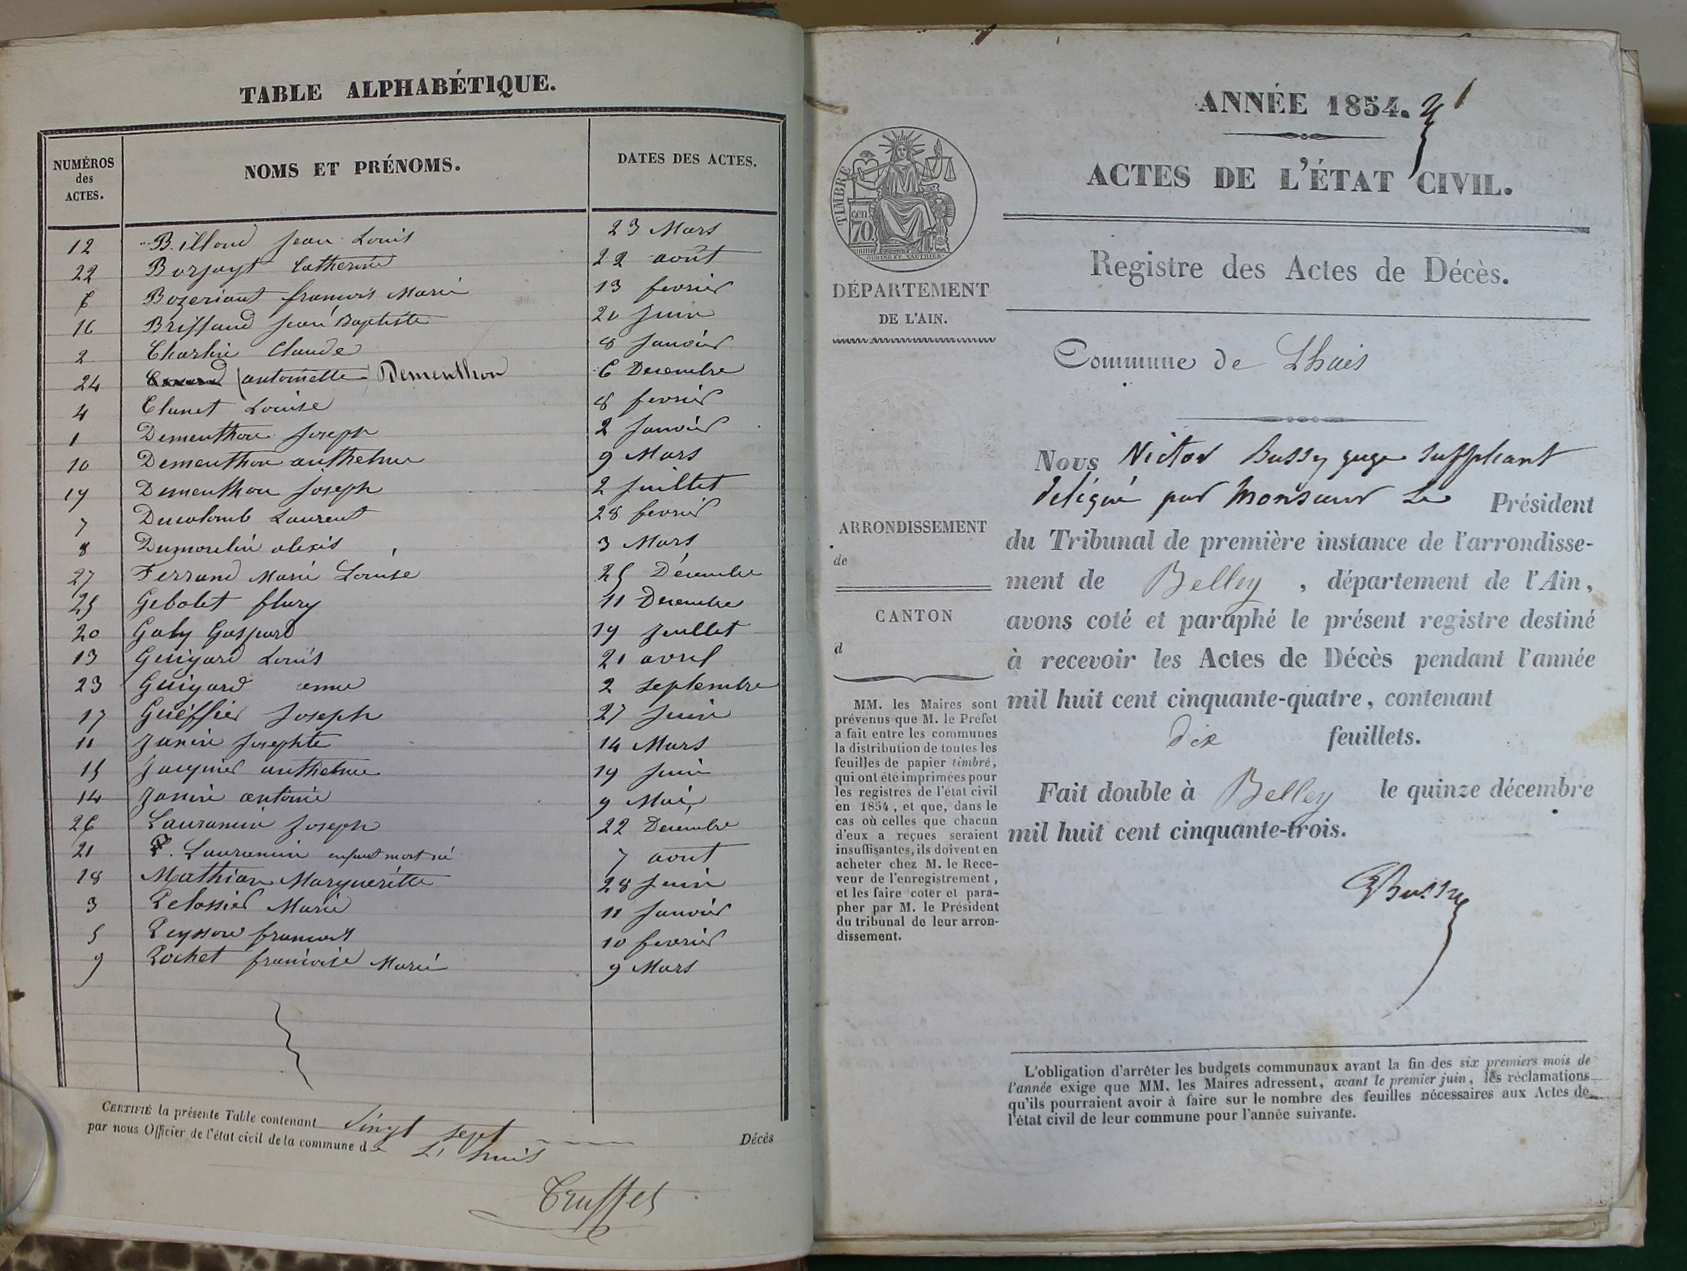 TABLE ALPHABÉTIQUE.
NUMÉROS des ACTES. NOMS ET PRÉNOMS. DATES DES ACTES.
12 Billoud Jean Louis 23 Mars
22 Borjayt Catherine 22 août
6 Bozeriaut françois Marie 13 fevrier
16 Briffaud Jean Baptiste 20 Juin
2 Charlin Claude 8 Janvier
24 (antoinette) Dementhon 6 Decembre
4 Clunet Louise 8 fevrier
1 Dementhon Joseph 2 Janvier
10 Dementhon anthelme 9 Mars
19 Dementhon Joseph 2 Juillet
7 Ducolomb Laurent 28 fevrier
8 Dumoulin alexis 3 Mars
27 Ferrand Marie Louise 25 Décembre
25 Gebolet flury 11 Decembre
20 Goby Gaspard 19 Juillet
13 Guigard Louis 21 avril
23 Guigard anne 2 septembre
17 Guéffier Joseph 27 Juin
11 Janin Josephte 14 Mars
15 Jacquier anthelme 19 Juin
14 Janin antoine 9 Mai
26 Lauranein Joseph 22 Decembre
21 Lauranein enfant mort né 7 aout
18 Mathian Marguerite 28 Juin
3 Pelossier Marie 11 Janvier
5 Peysson francois 10 fevrier
9 Rochet francoise Marie 9 Mars
CERTIFIÉ la présente Table contenant Vingt sept Décès
par nous Officier de l'état civil de la commune de L'huis
Truffet
ANNÉE 1854.
ACTES DE L'ÉTAT CIVIL.
Registre des Actes de Décès.
Commune de Lhuis
TIMBRE
cen 70
DÉPARTEMENT
DE L'AIN.
ARRONDISSEMENT
de
CANTON
d
MM. les Maires sont
prévenus que M. le Préfet
a fait entre les communes
la distribution de toutes les
feuilles de papier timbré,
qui ont été imprimées pour
les registres de l'état civil
en 1854, et que, dans le
cas où celles que chacun
d'eux a reçues seraient
insuffisantes, ils doivent en
acheter chez M. le Rece-
veur de l'enregistrement,
et les faire coter et para-
pher par M. le Président
du tribunal de leur arron-
dissement.
Nous Victor Bussy juge suppléant
délégué par Monsieur Le Président
du Tribunal de première instance de l'arrondisse-
ment de Belley, département de l'Ain,
avons coté et paraphé le présent registre destiné
à recevoir les Actes de Décès pendant l'année
mil huit cent cinquante-quatre, contenant
dix feuillets.
Fait double à Belley le quinze décembre
mil huit cent cinquante-trois.
Bussy
L'obligation d'arrêter les budgets communaux avant la fin des six premiers mois de
l'année exige que MM. les Maires adressent, avant le premier juin, les réclamations
qu'ils pourraient avoir à faire sur le nombre des feuilles nécessaires aux Actes de
l'état civil de leur commune pour l'année suivante.